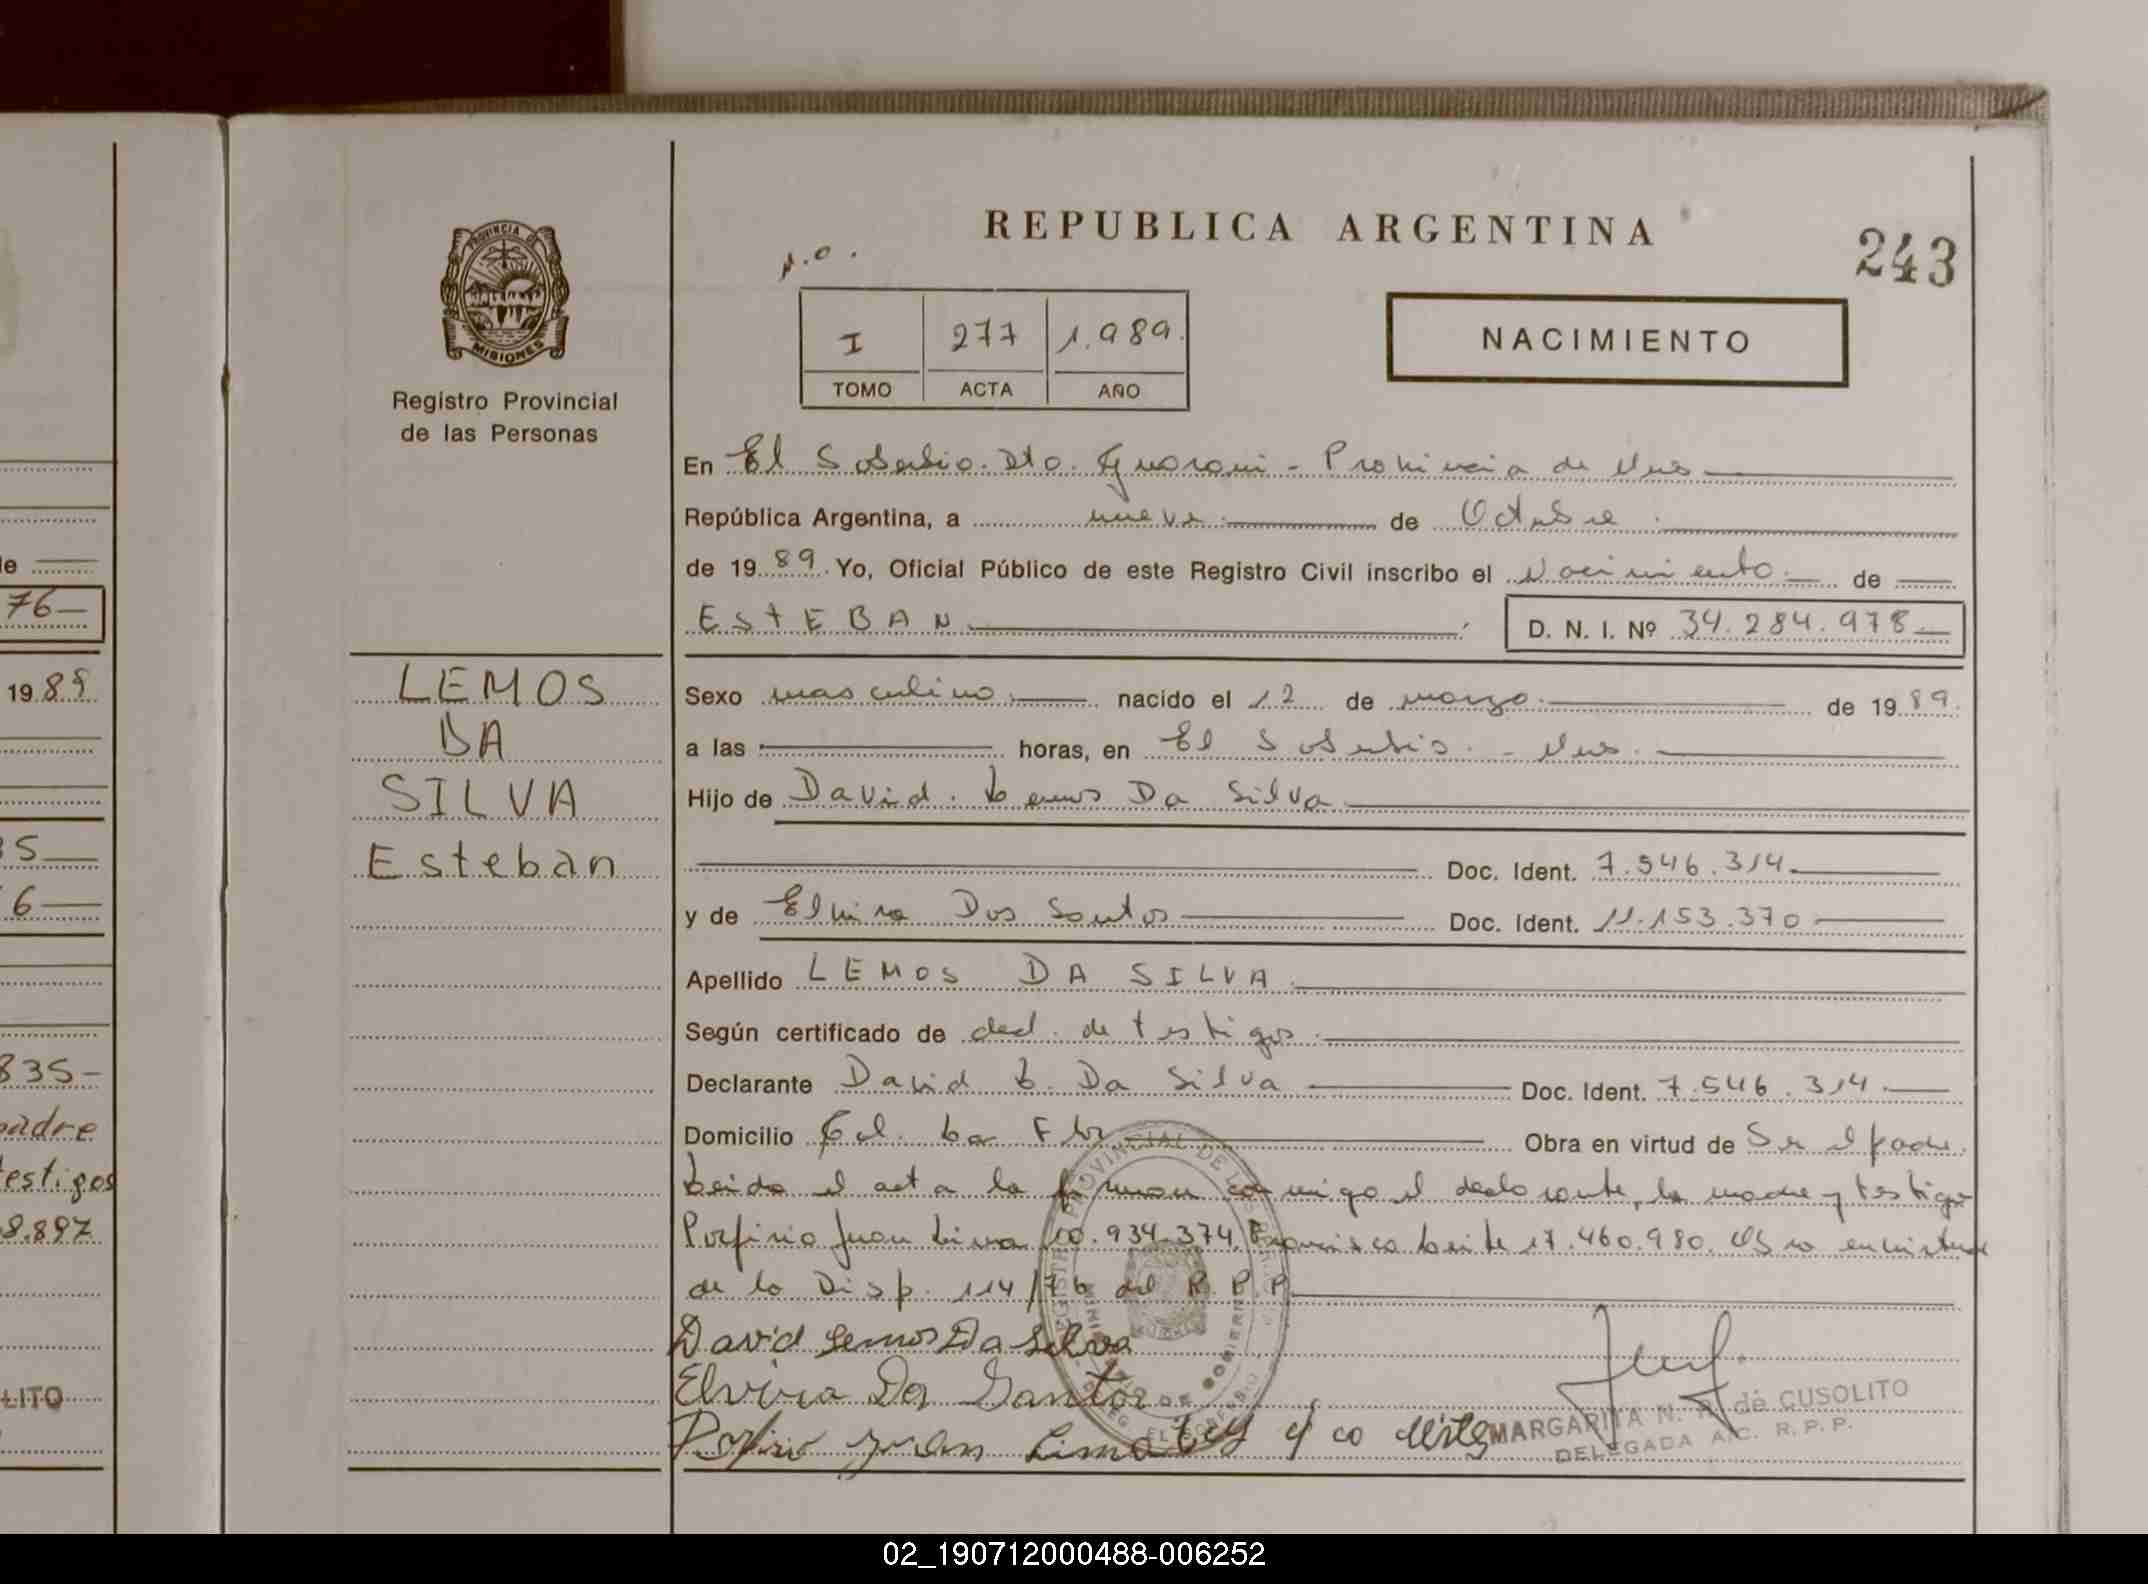 76
1989
35
6
835-
padre
testigos
8.897
LITO
PROVINCIA DE
MISIONES
Registro Provincial
de las Personas
LEMOS
DA
SILVA
Esteban
REPUBLICA ARGENTINA
243
I 277 1.989.
TOMO ACTA AÑO
NACIMIENTO
En El Soberbio. Dto. Guarani - Provincia de Mnes
República Argentina, a nueve de Octubre
de 1989. Yo, Oficial Público de este Registro Civil inscribo el Nacimiento de
ESTEBAN D. N. I. Nº 34.284.978
Sexo masculino nacido el 12 de marzo de 1989.
a las horas, en El Soberbio - Mnes.
Hijo de David. Lemos Da Silva
Doc. Ident. 7.546.314.
y de Elvira Dos Santos Doc. Ident. 11.153.370
Apellido LEMOS DA SILVA
Según certificado de decl. de testigos.
Declarante David L. Da Silva Doc. Ident. 7.546.314.
Domicilio Col. La Flor Obra en virtud de Ser el padre.
Leida el acta la firman conmigo el declarante, la madre y testigos
Porfirio Juan Lima 10.934.374, Francisco Leite 17.460.980. en virtud
de la Disp. 114/76 del R.P.P.
David Lemos Da Silva
Elvira Dos Santos
Porfirio Juan Lima
MARGARITA N. R. de CUSOLITO
DELEGADA A/C. R.P.P.
02_190712000488-006252